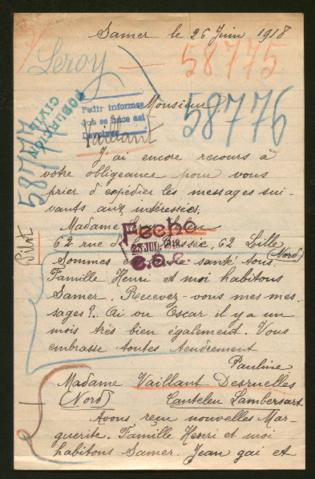 Samer le 26 Juin 1918
Leroy
58775
POBLACION
CIVIL
Pedir informes
Devolver
Monsieur
58776
58777
Vaillant
J'ai encore recours à
votre obligeance pour vous
prier d'expédier les messages sui-
vants aux intéressés.
Madame
62 rue d' 62 Lille
(Nord)
Sommes santé tous.
Famille Henri et moi habitons
Samer. Recevez-vous mes mes-
sages?. Ai vu Oscar il y a un
mois très bien également. Vous
embrasse toutes tendrement
Pauline
Fecho
23 JUL. 1918
Madame Vaillant Desruelles
(Nord) Canteleu Lambersart
Avons reçu nouvelles Mar-
guerite. Famille Henri et moi
habitons Samer. Jean gai et